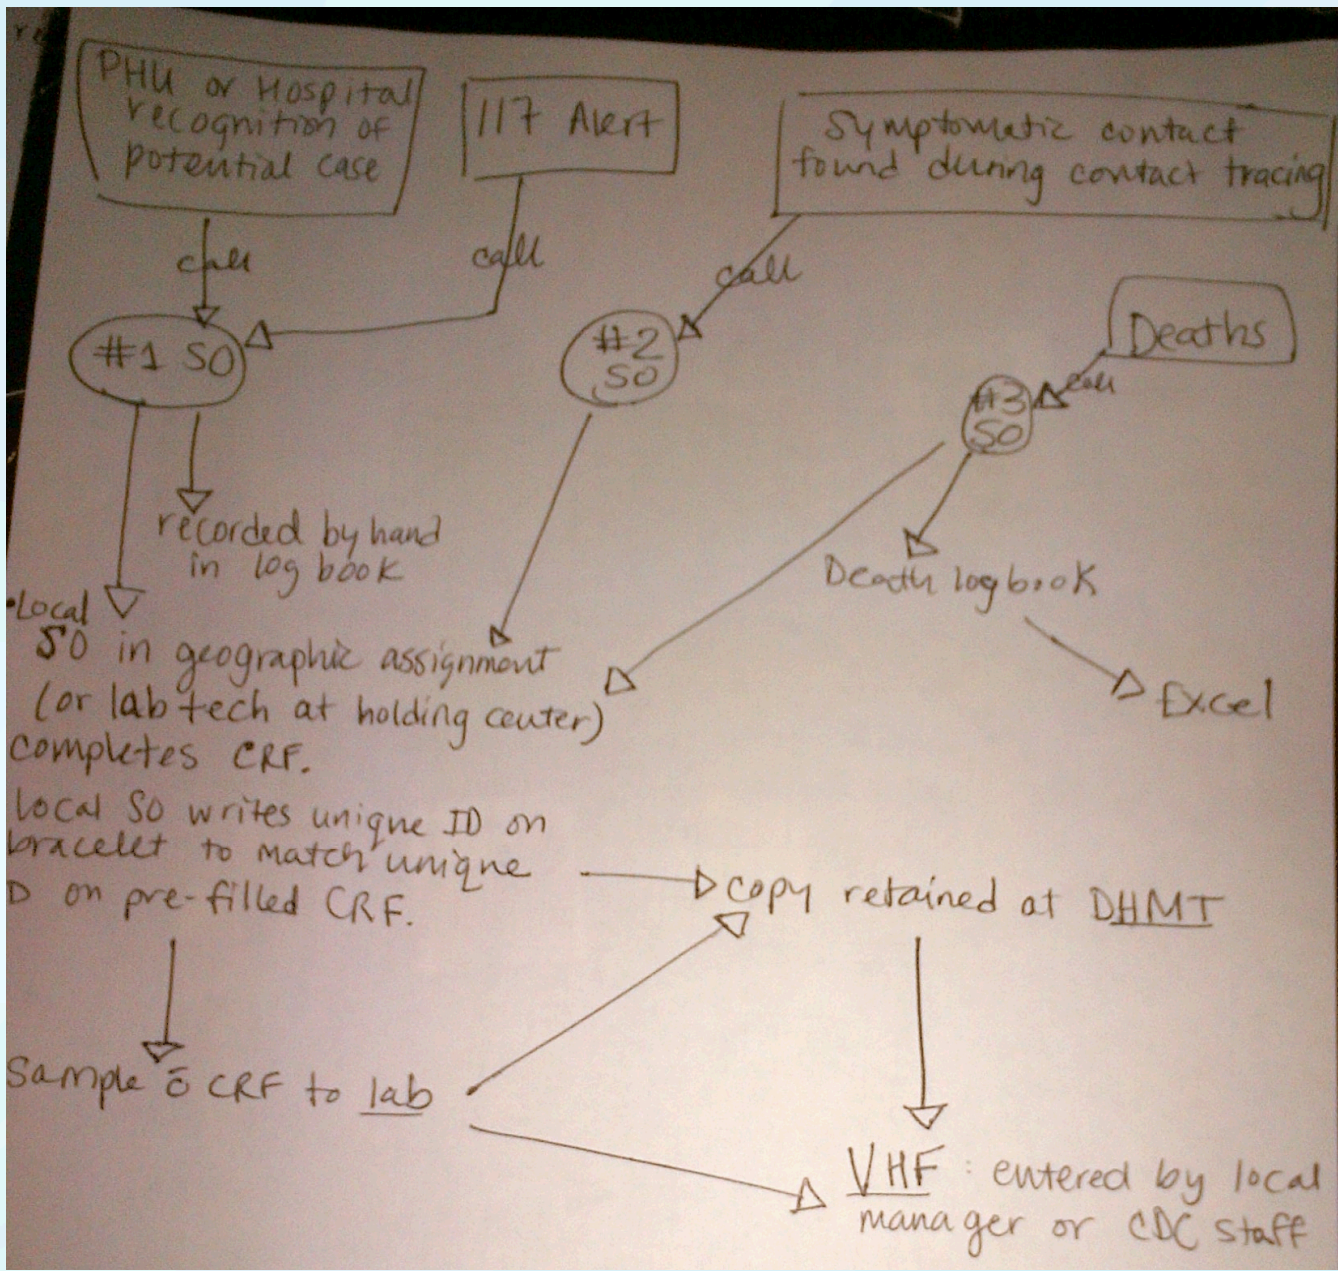 PHU or Hospital
recognition of
potential case
117 Alert
Symptomatic contact
found during contact tracing
call
call
call
Deaths
call
#1 SO
#2
SO
#3
SO
recorded by hand
in log book
Death logbook
Excel
•Local
SO in geographic assignment
(or lab tech at holding center)
completes CRF.
Local SO writes unique ID on
bracelet to match unique
D on pre-filled CRF.
copy retained at DHMT
Sample c̄ CRF to lab
VHF: entered by local
manager or CDC staff